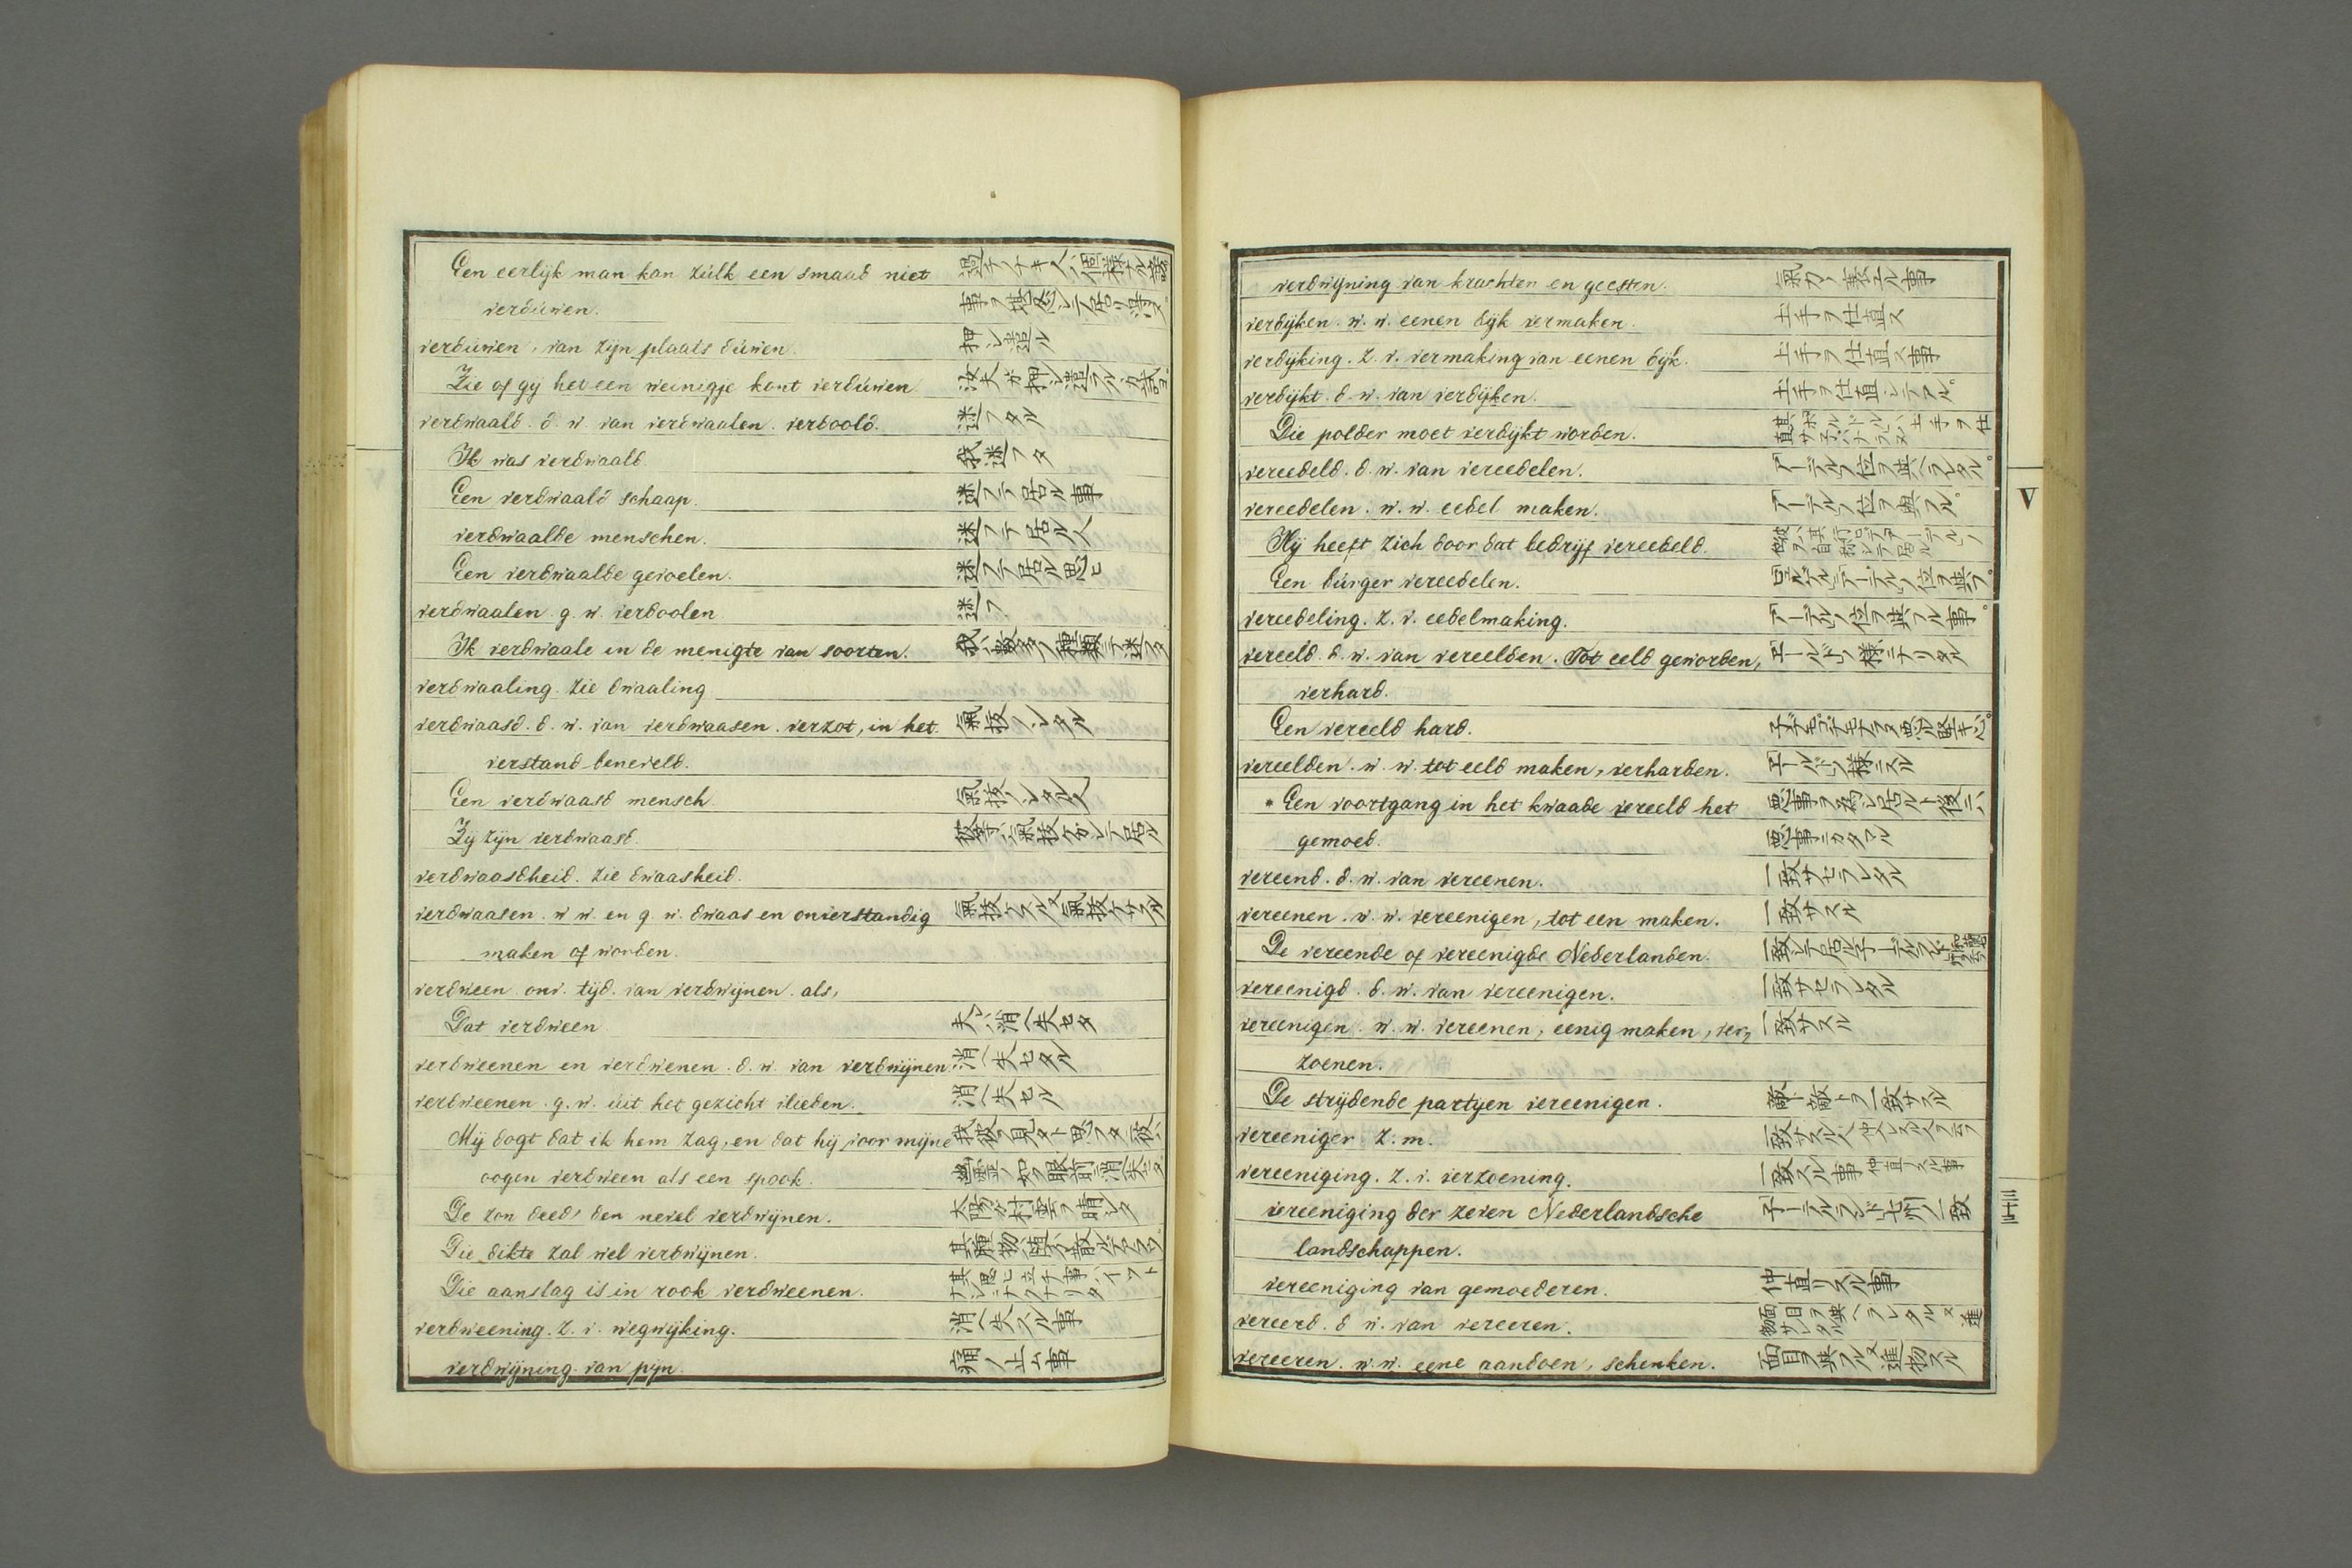 Een eerlijk man kan zúlk een smaad niet
verdúwen.
verdúwen, van zyn plaats dúwen. 押シ遣ル
Zie of gij het een weinigje kont verdúwen
verdwaald. d. w. van verdwaalen. verdoold. 迷フタル
Ik was verdwaald. 我迷フタ
Een verdwaald schaap. 迷フテ居ル事
verdwaalde menschen. 迷フテ居ル人
Een verdwaalde gevoelen. 迷フテ居ル思ヒ
verdwaalen. g. w. verdoolen 迷フ
Ik verdwaale in de menigte van soorten. 我ハ數多ノ種類ニテ迷フ
verdwaaling. zie dwaaling
verdwaasd. d. w. van verdwaasen. verzot, in het 氣抜ノシタル
verstand beneveld.
Een verdwaasd mensch. 氣抜ノシタル人
Zy zyn verdwaasd.
verdwaasdheid. zie dwaasheid.
verdwaasen. w w. en g. w. dwaas en onverstandig
maken of worden.
verdween onv. tijd. van verdwijnen. als,
Dat verdween 夫ハ消ヘ失セタ
verdweenen en verdwenen. d. w. van verdwijnen. 消ヘ失セタル
verdweenen. g. w. úit het gezicht vlieden. 消ヘ失セル
Mij dogt dat ik hem zag, en dat hij voor mijne 我彼ヲ見タト思フタ彼ハ
oogen verdween als een spook.
De zon deed den nevel verdwijnen.
Die dikte zal wel verdwijnen.
Die aanslag is in rook verdweenen.
verdweening. z. v. wegwijking. 消ヘ失スル事
verdwijning van pyn. 痛ノ止ム事
verdwijning van krachten en geesten. 氣力ノ衰エル事
verdijken. w. w. eenen dijk vermaken. 土手ヲ仕直ス
verdijking. z. v. vermaking van eenen dijk. 土手ヲ仕直ス事
verdijkt. d. w. van verdijken. 土手ヲ仕直シテアル。
Die polder moet verdijkt worden. 其ポルドルハ土手ヲ仕
直サ子バナラヌ
vereedeld. d. w. van vereedelen. アーデルノ位ヲ與ヘラレタル。
vereedelen. w. w. eedel maken. アーデルノ位ヲ與フル。
Hij heeft zich door dat bedrijf vereedeld.
Een búrger vereedelen.
vereedeling. z. v. eedelmaking. アーデルノ位ヲ與フル事。
vereeld. d. w. van vereelden. Tot eeld geworden, エールドノ様ニナリタル
verhard.
Een vereeld hard.
vereelden. w. w. tot eeld maken, verharden. エールドノ様ニスル
* Een voortgang in het kwaade vereeld het 悪事ヲ為シ居ルト後ニハ
gemoed. 悪事ニカタマル
vereend. d. w. van vereenen. 一致サセラレタル
vereenen. w. w. vereenigen, tot een maken. 一致サスル
De vereende of vereenigde Nederlanden.
vereenigd. d. w. van vereenigen. 一致サセラレタル
vereenigen. w. w. vereenen, eenig maken, ver, 一致サスル
zoenen.
De strijdende partyen vereenigen. 敵ト敵トヲ一致サスル
vereeniger z. m.
vereeniging. z. v. verzoening. 一致スル事 仲直リスル事
vereeniging der zeven Nederlandsche 子ーデルランド七州ノ一致
landschappen.
vereeniging van gemoederen. 仲直リスル事
vereerd. d w. van vereeren. 面目ヲ與ヘラレタル又進
物サレタル
vereeren. w. w. eene aandoen, schenken. 面目ヲ與フル又進物スル
V